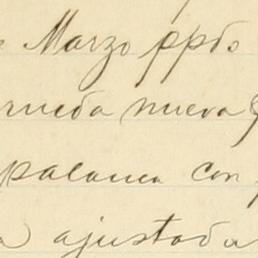 Marzo ppdo
rueda nueva
palanca con
ajustada